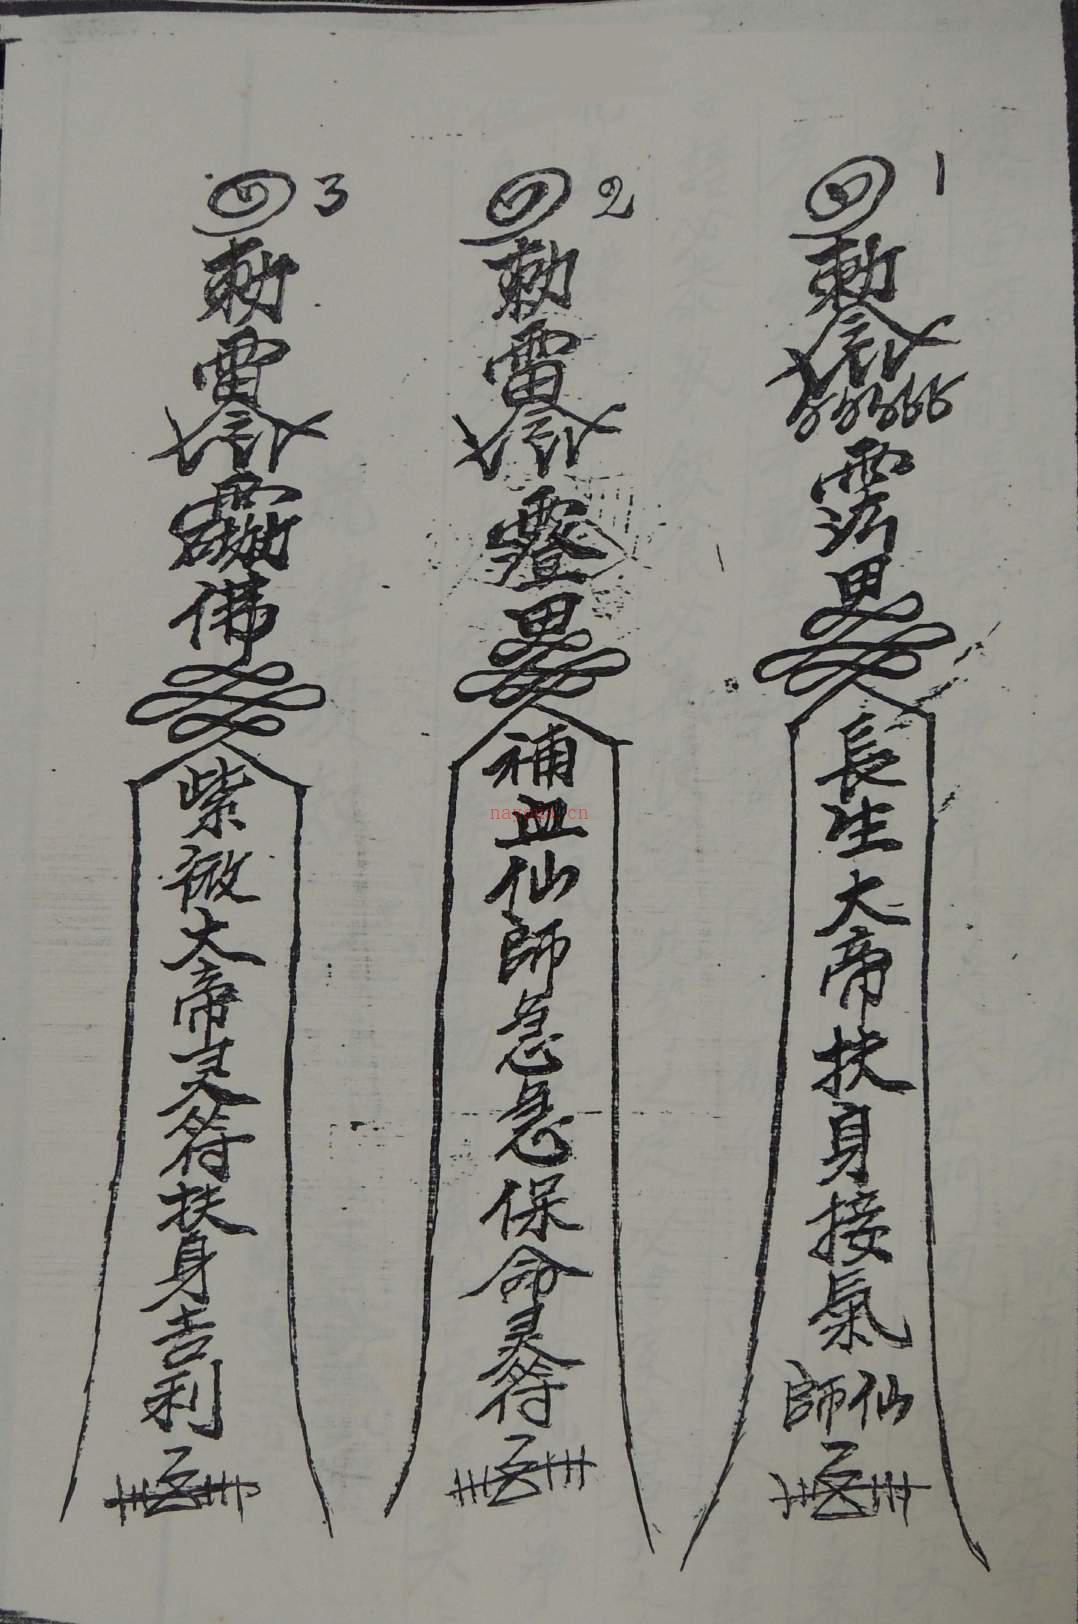 1
勅令
長生大帝扶身接氣
仙師
2
勅雷令
補血仙師急急保命灵符
3
勅雷令
佛
紫微大帝灵符扶身吉利
nayona.cn